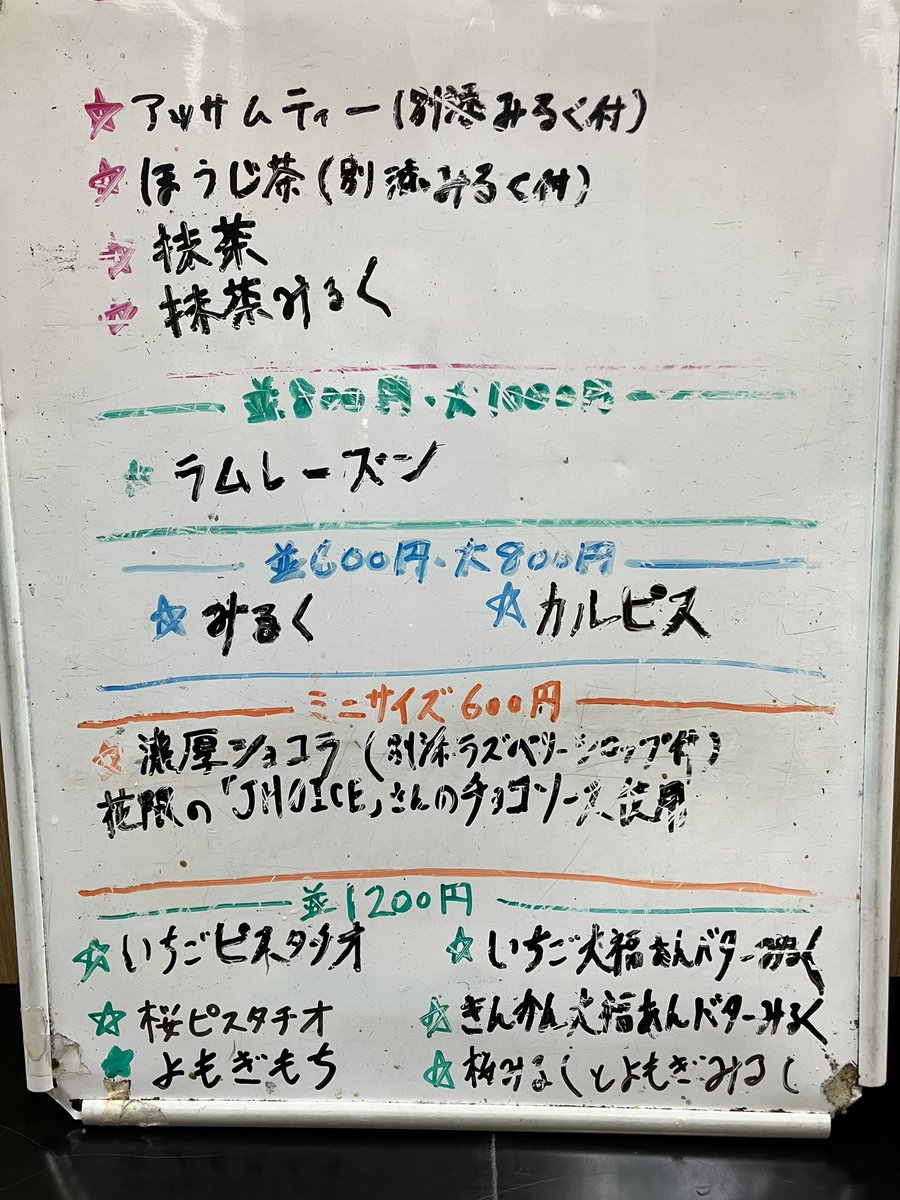 ☆アッサムティー(別添みるく付)
☆ほうじ茶(別添みるく付)
☆抹茶
☆抹茶みるく
並800円・大1000円
☆ラムレーズン
並600円・大800円
☆みるく ☆カルピス
ミニサイズ600円
☆濃厚ショコラ(別添ラズベリーシロップ付)
花隈の「JHOICE」さんのチョコソース使用
並1200円
☆いちごピスタチオ ☆いちご大福あんバターみるく
☆桜ピスタチオ ☆きんかん大福あんバターみるく
★よもぎもち ☆桜みるくとよもぎみるく